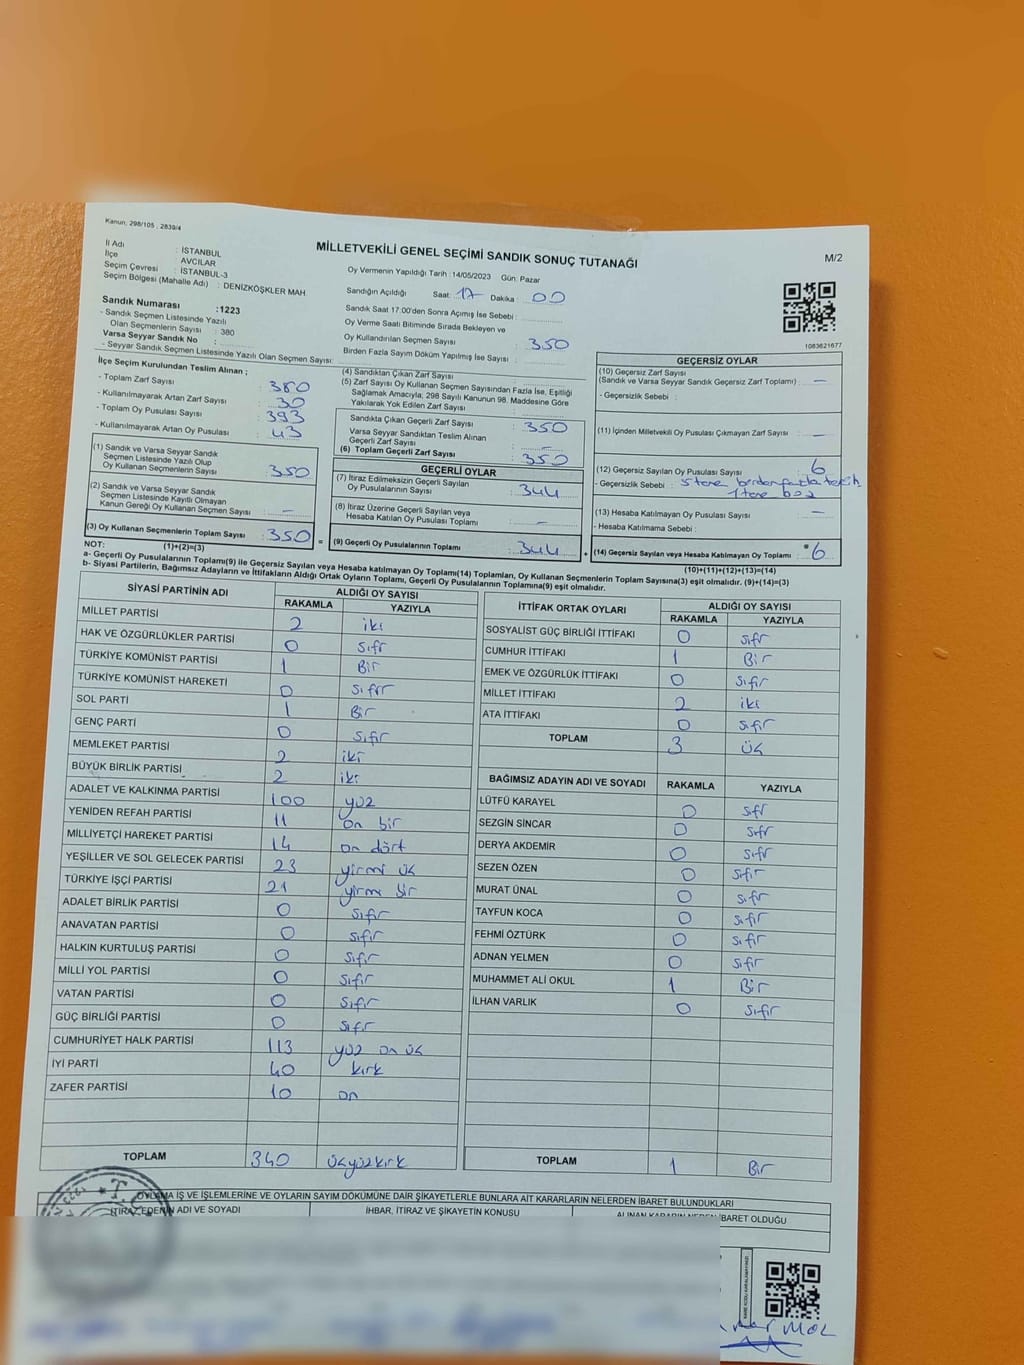 Kanun, 298/105 , 2839/4
MİLLETVEKİLİ GENEL SEÇİMİ SANDIK SONUÇ TUTANAĞI
M/2
İl Adı : İSTANBUL
İlçe : AVCILAR
Seçim Çevresi : İSTANBUL-3
Seçim Bölgesi (Mahalle Adı) : DENİZKÖŞKLER MAH
Oy Vermenin Yapıldığı Tarih :14/05/2023 Gün: Pazar
Sandığın Açıldığı Saat: 17 Dakika : 00
Sandık Saat 17.00'den Sonra Açımış İse Sebebi :
Oy Verme Saati Bitiminde Sırada Bekleyen ve
Oy Kullandırılan Seçmen Sayısı : 350
Birden Fazla Sayım Döküm Yapılmış İse Sayısı :
1083621677
Sandık Numarası :1223
- Sandık Seçmen Listesinde Yazılı
Olan Seçmenlerin Sayısı : 380
Varsa Seyyar Sandık No :
- Seyyar Sandık Seçmen Listesinde Yazılı Olan Seçmen Sayısı:
İlçe Seçim Kurulundan Teslim Alınan ;
- Toplam Zarf Sayısı : 380
- Kullanılmayarak Artan Zarf Sayısı : 30
- Toplam Oy Pusulası Sayısı : 393
- Kullanılmayarak Artan Oy Pusulası : 43
(1) Sandık ve Varsa Seyyar Sandık
Seçmen Listesinde Yazılı Olup
Oy Kullanan Seçmenlerin Sayısı : 350
(2) Sandık ve Varsa Seyyar Sandık
Seçmen Listesinde Kayıtlı Olmayan
Kanun Gereği Oy Kullanan Seçmen Sayısı : -
(3) Oy Kullanan Seçmenlerin Toplam Sayısı : 350
(1)+(2)=(3)
(4) Sandıktan Çıkan Zarf Sayısı :
(5) Zarf Sayısı Oy Kullanan Seçmen Sayısından Fazla İse, Eşitliği
Sağlamak Amacıyla; 298 Sayılı Kanunun 98. Maddesine Göre
Yakılarak Yok Edilen Zarf Sayısı :
Sandıkta Çıkan Geçerli Zarf Sayısı : 350
Varsa Seyyar Sandıktan Teslim Alınan
Geçerli Zarf Sayısı : -
(6) Toplam Geçerli Zarf Sayısı : 350
GEÇERLİ OYLAR
(7) İtiraz Edilmeksizin Geçerli Sayılan
Oy Pusulalarının Sayısı : 344
(8) İtiraz Üzerine Geçerli Sayılan veya
Hesaba Katılan Oy Pusulası Toplamı : -
(9) Geçerli Oy Pusulalarının Toplamı : 344
GEÇERSİZ OYLAR
(10) Geçersiz Zarf Sayısı
(Sandık ve Varsa Seyyar Sandık Geçersiz Zarf Toplamı) : -
- Geçersizlik Sebebi :
(11) İçinden Milletvekili Oy Pusulası Çıkmayan Zarf Sayısı : -
(12) Geçersiz Sayılan Oy Pusulası Sayısı : 6
- Geçersizlik Sebebi : 5 tane birden fazla tercih
1 tane boş
(13) Hesaba Katılmayan Oy Pusulası Sayısı : -
- Hesaba Katılmama Sebebi :
(14) Geçersiz Sayılan veya Hesaba Katılmayan Oy Toplamı : 6
(10)+(11)+(12)+(13)=(14)
NOT:
a- Geçerli Oy Pusulalarının Toplamı(9) ile Geçersiz Sayılan veya Hesaba katılmayan Oy Toplamı(14) Toplamları, Oy Kullanan Seçmenlerin Toplam Sayısına(3) eşit olmalıdır. (9)+(14)=(3)
b- Siyasi Partilerin, Bağımsız Adayların ve İttifakların Aldığı Ortak Oyların Toplamı, Geçerli Oy Pusulalarının Toplamına(9) eşit olmalıdır.
SİYASİ PARTİNİN ADI ALDIĞI OY SAYISI
RAKAMLA YAZIYLA
MİLLET PARTİSİ 2 iki
HAK VE ÖZGÜRLÜKLER PARTİSİ 0 sıfır
TÜRKİYE KOMÜNİST PARTİSİ 1 Bir
TÜRKİYE KOMÜNİST HAREKETİ 0 sıfır
SOL PARTİ 1 Bir
GENÇ PARTİ 0 sıfır
MEMLEKET PARTİSİ 2 iki
BÜYÜK BİRLİK PARTİSİ 2 iki
ADALET VE KALKINMA PARTİSİ 100 yüz
YENİDEN REFAH PARTİSİ 11 on bir
MİLLİYETÇİ HAREKET PARTİSİ 14 on dört
YEŞİLLER VE SOL GELECEK PARTİSİ 23 yirmi üç
TÜRKİYE İŞÇİ PARTİSİ 21 yirmi bir
ADALET BİRLİK PARTİSİ 0 sıfır
ANAVATAN PARTİSİ 0 sıfır
HALKIN KURTULUŞ PARTİSİ 0 sıfır
MİLLİ YOL PARTİSİ 0 sıfır
VATAN PARTİSİ 0 sıfır
GÜÇ BİRLİĞİ PARTİSİ 0 sıfır
CUMHURİYET HALK PARTİSİ 113 yüz on üç
İYİ PARTİ 40 kırk
ZAFER PARTİSİ 10 on
TOPLAM 340 üçyüzkırk
İTTİFAK ORTAK OYLARI ALDIĞI OY SAYISI
RAKAMLA YAZIYLA
SOSYALİST GÜÇ BİRLİĞİ İTTİFAKI 0 sıfır
CUMHUR İTTİFAKI 1 Bir
EMEK VE ÖZGÜRLÜK İTTİFAKI 0 sıfır
MİLLET İTTİFAKI 2 iki
ATA İTTİFAKI 0 sıfır
TOPLAM 3 üç
BAĞIMSIZ ADAYIN ADI VE SOYADI RAKAMLA YAZIYLA
LÜTFÜ KARAYEL 0 sıfır
SEZGİN SİNCAR 0 sıfır
DERYA AKDEMİR 0 sıfır
SEZEN ÖZEN 0 sıfır
MURAT ÜNAL 0 sıfır
TAYFUN KOCA 0 sıfır
FEHMİ ÖZTÜRK 0 sıfır
ADNAN YELMEN 0 sıfır
MUHAMMET ALİ OKUL 1 Bir
İLHAN VARLIK 0 sıfır
TOPLAM 1 Bir
OYLAMA İŞ VE İŞLEMLERİNE VE OYLARIN SAYIM DÖKÜMÜNE DAİR ŞİKAYETLERLE BUNLARA AİT KARARLARIN NELERDEN İBARET BULUNDUKLARI
İTİRAZ EDENİN ADI VE SOYADI İHBAR, İTİRAZ VE ŞİKAYETİN KONUSU ALINAN KARARIN NEDEN İBARET OLDUĞU